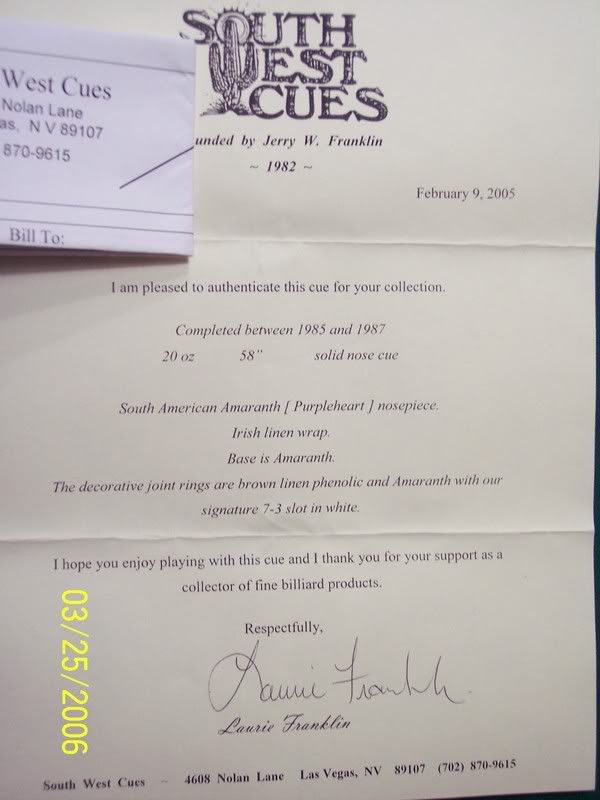 SOUTH
WEST
CUES
unded by Jerry W. Franklin
~ 1982 ~
West Cues
Nolan Lane
as, N V 89107
870-9615
Bill To:
February 9, 2005
I am pleased to authenticate this cue for your collection.
Completed between 1985 and 1987
20 oz 58" solid nose cue
South American Amaranth [ Purpleheart ] nosepiece.
Irish linen wrap.
Base is Amaranth.
The decorative joint rings are brown linen phenolic and Amaranth with our
signature 7-3 slot in white.
I hope you enjoy playing with this cue and I thank you for your support as a
collector of fine billiard products.
Respectfully,
Laurie Franklin
Laurie Franklin
South West Cues ~ 4608 Nolan Lane Las Vegas, NV 89107 (702) 870-9615
03/25/2006